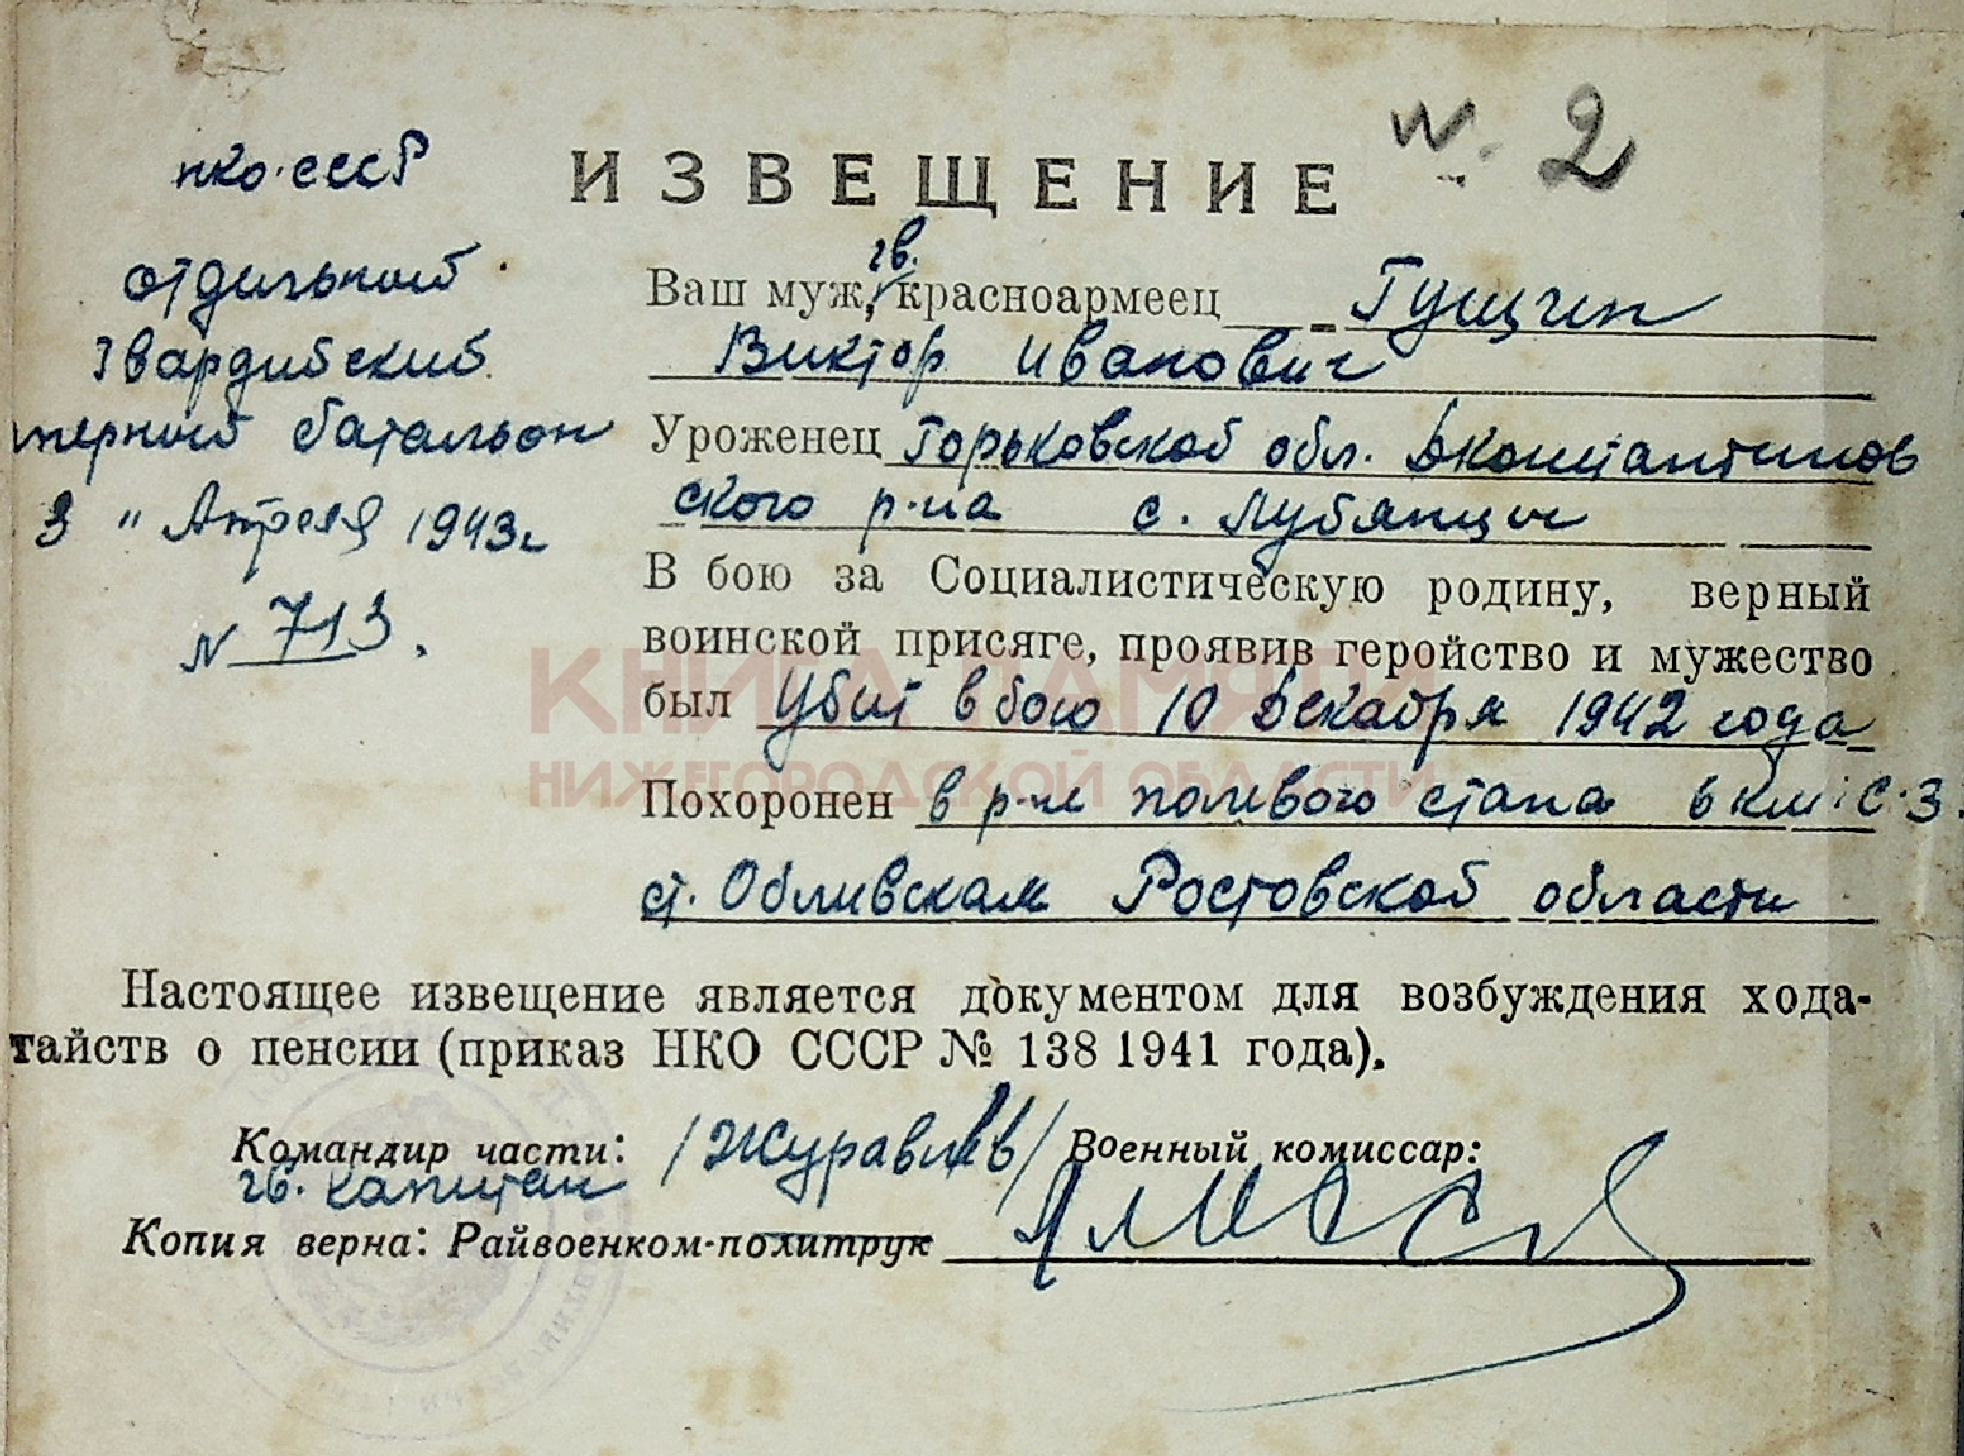 N. 2
НКО. СССР
ИЗВЕЩЕНИЕ
отдельный
гвардейский
терный батальон
3 " Апреля 1943г
N 713.
гв.
Ваш муж, красноармеец Гущин
Виктор Иванович
Уроженец Горьковской обл. Дконстантинов
ского р-на с. Лубянцы
В бою за Социалистическую родину, верный
воинской присяге, проявив геройство и мужество
был убит в бою 10 Декабря 1942 года
КНИГА ПАМЯТИ
НИЖЕГОРОДСКОЙ ОБЛАСТИ
Похоронен в р-не полевого стана 6 км. С.З.
ст. Обливская Ростовской области
Настоящее извещение является документом для возбуждения хода-
тайств о пенсии (приказ НКО СССР № 138 1941 года).
Командир части: /Журавлев/ Военный комиссар:
гв. капитан
Копия верна: Райвоенком-политрук